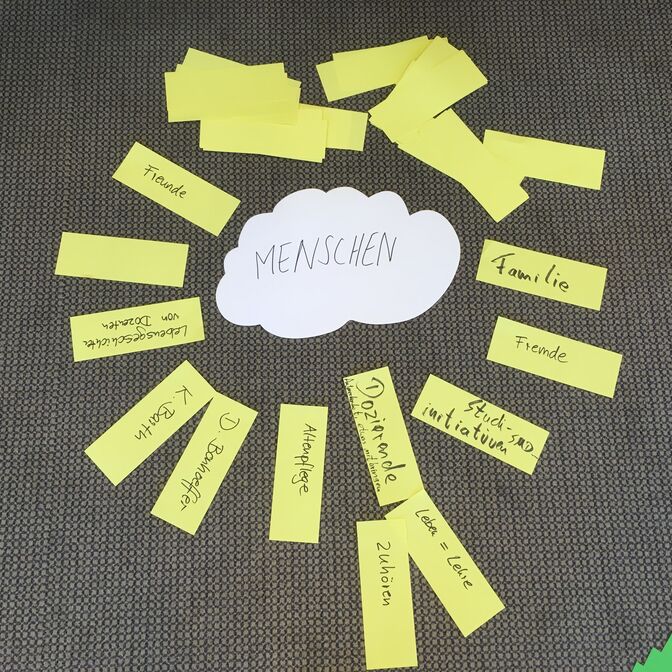 MENSCHEN
Freunde
Familie
Fremde
Studi-
initiativen
Dozierende
Leben = Lehre
zuhören
Altenpflege
D. Bonhoeffer
K. Barth
Lebensgeschichte
von Dozenten